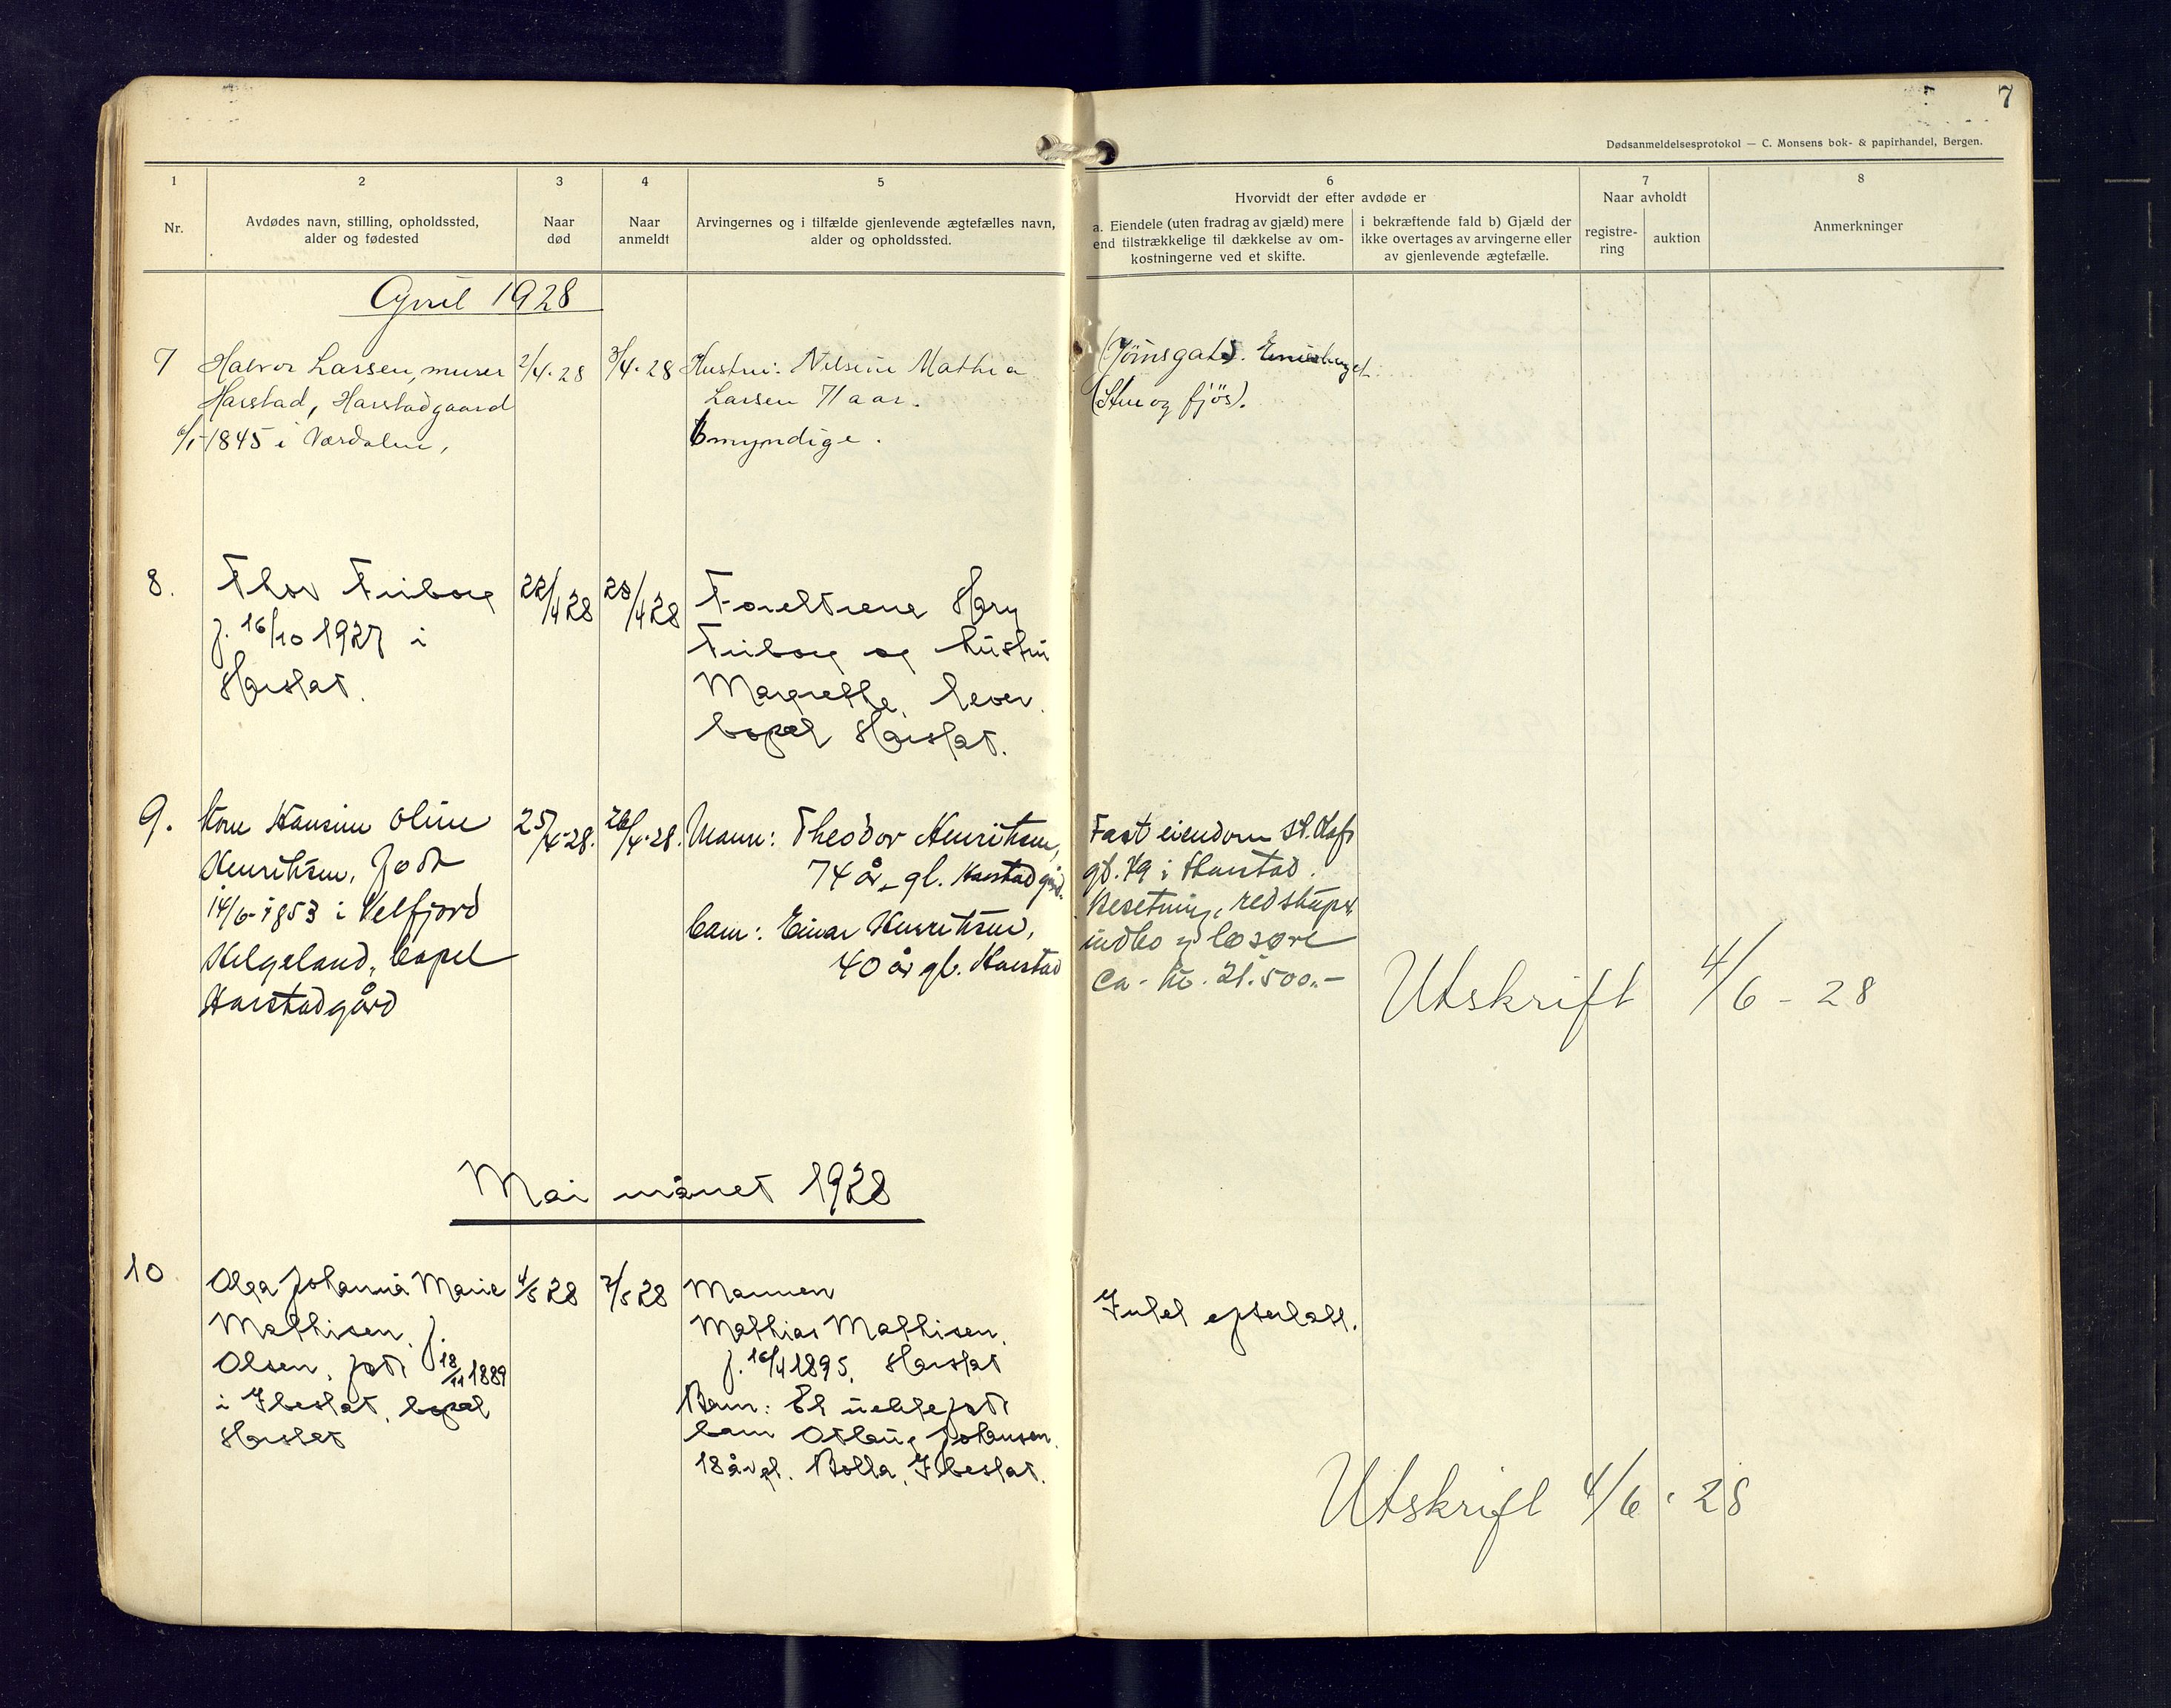 7
Dødsanmeldelsesprotokol — C. Monsens bok- & papirhandel, Bergen.
1
Nr.
2
Avdødes navn, stilling, opholdssted,
alder og fødested
3
Naar
død
4
Naar
anmeldt
5
Arvingernes og i tilfælde gjenlevende ægtefælles navn,
alder og opholdssted.
6
Hvorvidt der efter avdøde er
a. Eiendele (uten fradrag av gjæld) mere
end tilstrækkelige til dækkelse av om-
kostningerne ved et skifte.
i bekræftende fald b) Gjæld der
ikke overtages av arvingerne eller
av gjenlevende ægtefælle.
7
Naar avholdt
registre-
ring
auktion
8
Anmerkninger
April 1928
7
Halvor Larsen, murer
Harstad, Harstadgaard
6/1-1845 i Værdalen,
2/4-28
3/4-28
Hustru: Nilsine Mathea
Larsen 71 aar.
6 myndige.
(Stue og fjös).
8.
Thor Friborg
f. 16/10 1927 i
Harstat.
22/4 28
23/4 28
Foreldrene Hary
Friborg og hustru
Margrethe, lever.
bopel Harstat.
9.
Kone Hansine Oline
Henriksen, født
14/6-1853 i Velfjord
Helgeland, bopel
Harstadgård
25/4-28.
26/4-28.
Mann: Theodor Henriksen,
74 år gl. Harstadgård.
barn: Einar Henriksen,
40 år gl. Harstad
Fast eiendom St. Olafs
gt. 49 i Harstad.
Besetning, redskaper,
indbo og løsøre
ca. kr. 21.500.-
Utskrift 4/6-28
Mai månet 1928
10
Olga Johanna Marie
Mathisen, f.
Olsen, født 18/11 1889
i Ibestat, bopel
Harstat
4/5 28
7/5 28
Mannen
Mathias Mathisen,
f. 16/4 1895, Harstat
Barn: Et uektefødt
barn Johansen.
18 år gl. Rolla, Ibestat.
Intet efterlatt.
Utskrift 4/6-28